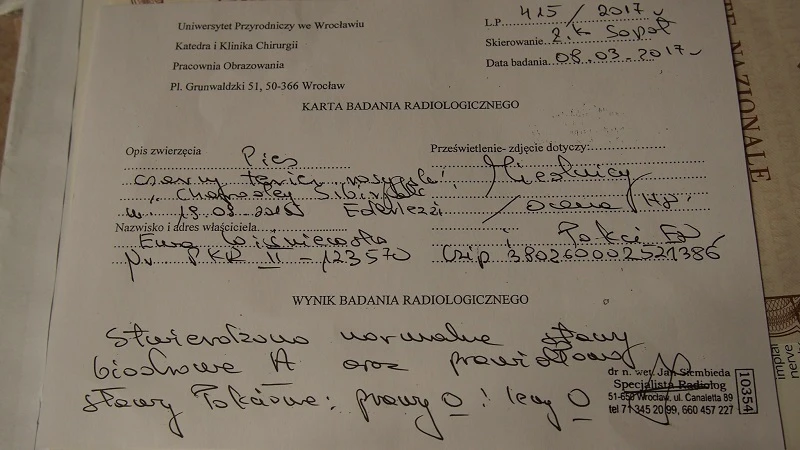 Uniwersytet Przyrodniczy we Wrocławiu
Katedra i Klinika Chirurgii
Pracownia Obrazowania
Pl. Grunwaldzki 51, 50-366 Wrocław
L.P. 415/2017
Skierowanie Z.K Sopot
Data badania 08.03-2017
KARTA BADANIA RADIOLOGICZNEGO
Opis zwierzęcia Pies
czarny terier rosyjski
Prześwietlenie- zdjęcie dotyczy:
Miednicy
ocena HD
i Łokci ED
Nazwisko i adres właściciela
Ewa
nr PKR II - 123570 Czip 380260002521386
WYNIK BADANIA RADIOLOGICZNEGO
Stwierdzono normalne stawy
biodrowe A oraz prawidłowe
stawy łokciowe: prawy 0 i lewy 0
dr n. wet. Jan Siembieda
Specjalista Radiolog
51-650 Wrocław, ul. Canaletta 89
tel 71 345 20 99, 660 457 227
10354
NAZIONALE
implan
nerve